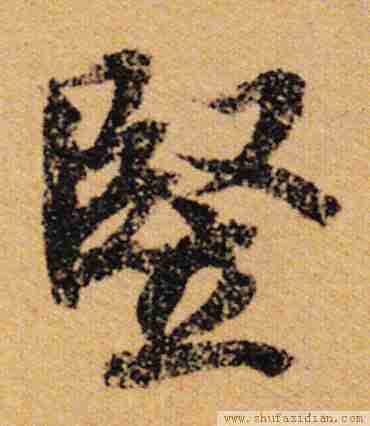 竪
www.shufazidian.com